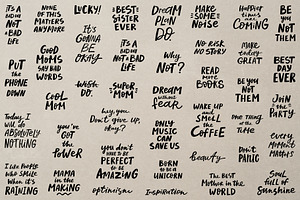 IT'S A
BAD DAY
NOT A
BAD LIFE
NONE
OF THIS
MATTERS
ANYMORE
LUCKY!
It's
GONNA
BE
OKAY.
BEST
SISTER
EVER
DREAM
PLAN
DO
MAKE
SOME
NOISE
Happier
times
are
COMING
BE
YOU
NOT
THEM
PUT
the
PHONE
DOWN
GOOD
MOMS
SAY BAD
WORDS
IT'S A
BAD DAY
NOT A
BAD LIFE
Why
NOT?
NO RISK
NO STORY
MAKE
today
GREAT
BEST
DAY
EVER
COOL
MOM
WISH.
DO.
SUPER
MOM
DREAM
without
fear
READ
more
BOOKS
BE YOU
NOT
THEM
JOIN
the
PARTY
Today I
will do
ABSOLUTELY
NOTHING
you've
GOT
the
POWER
hey, you.
Don't give up,
okay?
ONLY
MUSIC
CAN
SAVE US
WAKE UP
and
SMELL
the
COFFEE
ONE THING
at the
TIME
every
MOMENT
MATTERS
I like People
who Smile
when it's
RAINING
MAMA
IN the
MAKING
you don't
HAVE TO BE
PERFECT
to be
AMAZING
optimism
BORN
to be a
UNICORN
Inspiration
beauty
DON'T
PANIC
The BEST
Mother in the
WORLD
Soul
full of
Sunshine